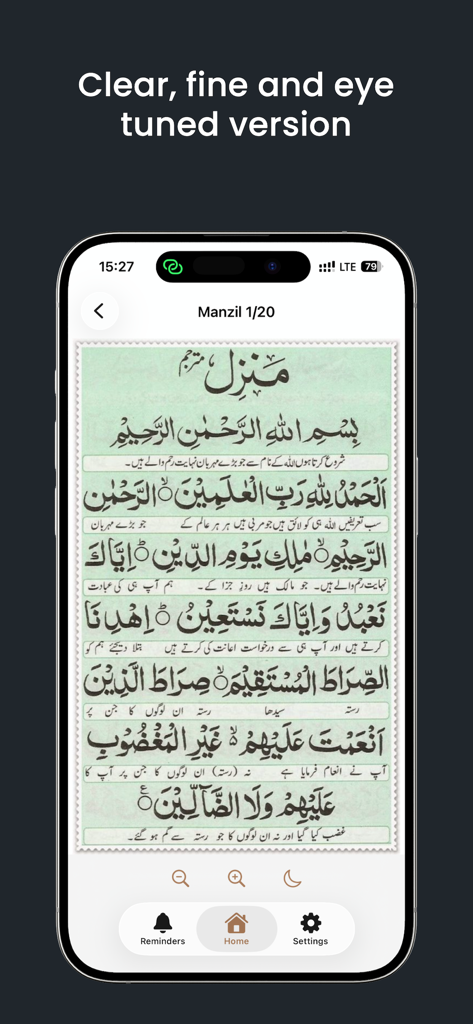 Clear, fine and eye
tuned version
15:27
LTE 79
Manzil 1/20
مَنزِل مترجم
بِسْمِ اللهِ الرَّحْمٰنِ الرَّحِيْمِ
شروع کرتا ہوں اللہ کے نام سے جو بڑے مہربان نہایت رحم والے ہیں۔
اَلْحَمْدُ لِلّٰهِ رَبِّ الْعٰلَمِيْنَ ۙ الرَّحْمٰنِ
سب تعریفیں اللہ ہی کو لائق ہیں جو مربی ہیں ہر ہر عالم کے جو بڑے مہربان
الرَّحِيْمِ ۙ مٰلِكِ يَوْمِ الدِّيْنِ ؕ اِيَّاكَ
نہایت رحم والے ہیں۔ جو مالک ہیں روز جزا کے۔ ہم آپ ہی کی عبادت
نَعْبُدُ وَاِيَّاكَ نَسْتَعِيْنُ ؕ اِهْدِنَا
کرتے ہیں اور آپ ہی سے درخواست اعانت کی کرتے ہیں بتلا دیجئے ہم کو
الصِّرَاطَ الْمُسْتَقِيْمَ ۙ صِرَاطَ الَّذِيْنَ
رستہ سیدھا رستہ ان لوگوں کا جن پر
اَنْعَمْتَ عَلَيْهِمْ ۙ غَيْرِ الْمَغْضُوْبِ
آپ نے انعام فرمایا ہے نہ (رستہ) ان لوگوں کا جن پر آپ کا
عَلَيْهِمْ وَلَا الضَّآلِّيْنَ ۧ
غضب کیا گیا اور نہ ان لوگوں کا جو رستہ سے گم ہو گئے۔
Reminders
Home
Settings